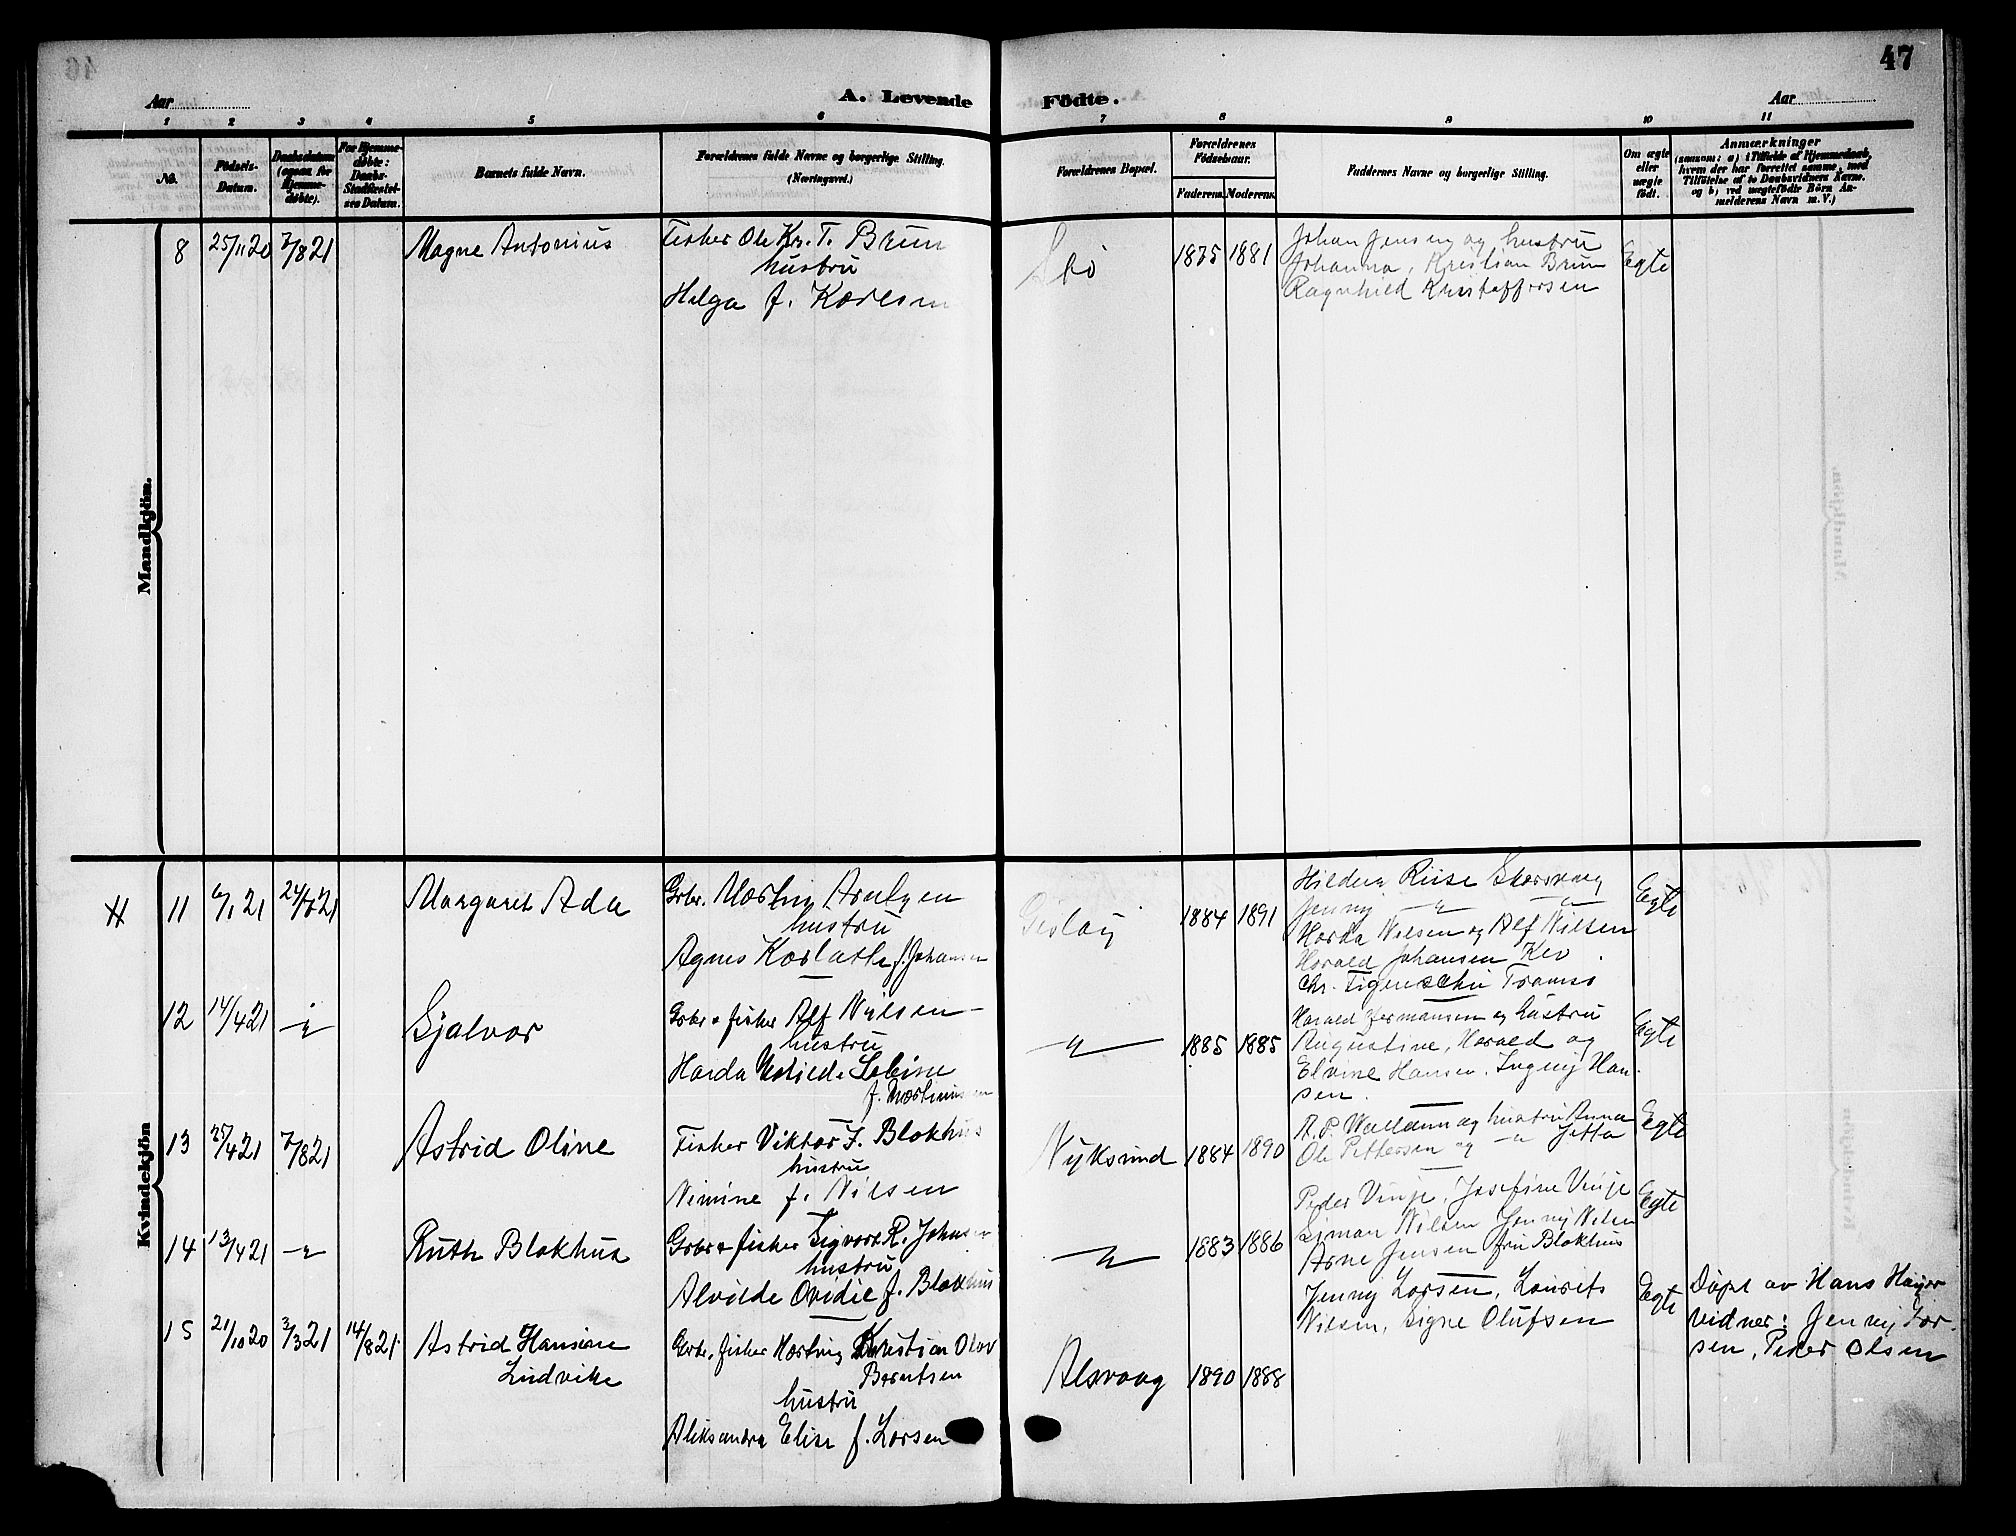 47
Aar
A. Levende Födte.
Aar
1 2 3 4 5 6 7 8 9 10 11
No.
Födsels-Datum.
Daabsdatum (ogsaa for Hjemme-döbte).
For Hjemme-döbte: Daabs-Stadfæstel-ses Datum.
Barnets fulde Navn.
Forældrenes fulde Navne og borgerlige Stilling. (Næringsvei.)
Forældrenes Bopæl.
Forældrenes Födselsaar.
Faderens. Moderens.
Faddernes Navne og borgerlige Stilling.
Om ægte eller uægte födt.
Anmærkninger
(saasom: a) i Tilfælde af Hjemmedaab,
hvem der har forrettet samme, med
Tilföielse af to Daabsvidners Navne.
og b) ved uægtefödte Börn An-
melderens Navn m. V.)
Mandkjön.
8 25/11 20 7/8 21 Magne Antonius
Fisker Ole Kr. T. Brun
hustru
Helga f. Karlsen
1875 1881
Johan Jensen og hustru
Johanna, Kristian Brun
Ragnhild Kristoffersen
Egte
Kvindekjön
11 6/1 21 24/7 21 Margaret Ada
Grbr. Martin Arntzen
hustru
Agnes f. Johansen
1884 1891
Jenny
Harda Nilsen og Alf Nilsen
Harald Johansen
Chr. Tromsö
Egte
12 14/4 21 Gjalvor
Grbr & fisker Alf Nilsen
hustru
Harda f. Martinussen
1885 1885
Harald Hermansen og hustru
Augustine, Harald og
Elvine Hansen, Ingvij Han-
sen.
Egte
13 25/4 21 7/8 21 Astrid Oline
Fisker Viktor J. Blokhus
hustru
Nimine f. Nilsen
Nyksund 1884 1890
og hustru Anna
Ole Pettersen og
Egte
14 13/4 21 Ruth Blokhus
Grbr & fisker Sigvart R. Johnsen
hustru
Alvilde Ovidie f. Blokhus
1883 1886
Peder Vinje, Josefine Vinje
Simon Nilsen Jenny Nilsen
Arne Jensen fru Blokhus
Egte
15 21/10 20 3/3 21 14/8 21 Astrid Hansine
Ludvike
Grbr, fisker Kristian Olav
Berntsen
hustru
Aleksandra Elise f. Larsen
Alsvaag 1890 1888
Jenny Larsen, Laurits
Nilsen, Signe Olufsen
Egte
Döpt av Hans
vidner: Jenny Lar-
sen, Peder Olsen